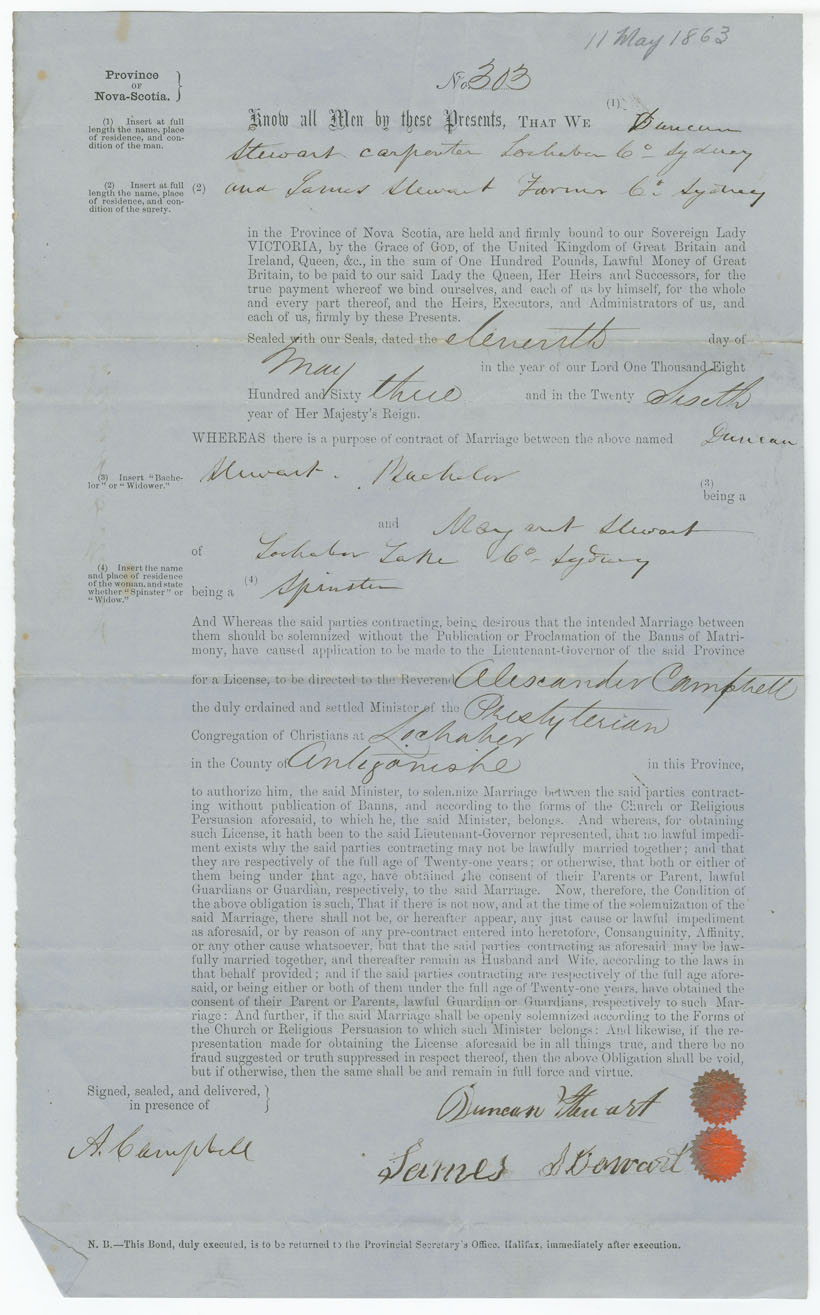 11 May 1863
Province
OF
Nova-Scotia. }
No 303
(1) Insert at full
length the name, place
of residence, and con-
dition of the man.
Know all Men by these Presents, THAT WE (1) Duncan
Stewart carpenter Lochaber Co Sydney
(2) Insert at full
length the name, place
of residence, and con-
dition of the surety.
(2) and James Stewart Farmer Co. Sydney
in the Province of Nova Scotia, are held and firmly bound to our Sovereign Lady
VICTORIA, by the Grace of GOD, of the United Kingdom of Great Britain and
Ireland, Queen, &c., in the sum of One Hundred Pounds, Lawful Money of Great
Britain, to be paid to our said Lady the Queen, Her Heirs and Successors, for the
true payment whereof we bind ourselves, and each of us by himself, for the whole
and every part thereof, and the Heirs, Executors, and Administrators of us, and
each of us, firmly by these Presents.
Sealed with our Seals, dated the eleventh day of
May in the year of our Lord One Thousand Eight
Hundred and Sixty three and in the Twenty Sixth
year of Her Majesty's Reign.
WHEREAS there is a purpose of contract of Marriage between the above named Duncan
Stewart. Bachelor
(3) Insert "Bache-
lor" or "Widower."
(3)
being a
and Margaret Stewart
of Lochaber Lake Co Sydney
(4) Insert the name
and place of residence
of the woman, and state
whether "Spinster" or
"Widow."
being a (4) Spinster
And Whereas the said parties contracting, being desirous that the intended Marriage between
them should be solemnized without the Publication or Proclamation of the Banns of Matri-
mony, have caused application to be made to the Lieutenant-Governor of the said Province
for a License, to be directed to the Reverend Alexander Campbell
the duly ordained and settled Minister of the Presbyterian
Congregation of Christians at Lochaber
in the County of Antigonishe in this Province,
to authorize him, the said Minister, to solemnize Marriage between the said parties contract-
ing without publication of Banns, and according to the forms of the Church or Religious
Persuasion aforesaid, to which he, the said Minister, belongs. And whereas, for obtaining
such License, it hath been to the said Lieutenant-Governor represented, that no lawful impedi-
ment exists why the said parties contracting may not be lawfully married together; and that
they are respectively of the full age of Twenty-one years; or otherwise, that both or either of
them being under that age, have obtained the consent of their Parents or Parent, lawful
Guardians or Guardian, respectively, to the said Marriage. Now, therefore, the Condition of
the above obligation is such, That if there is not now, and at the time of the solemnization of the
said Marriage, there shall not be, or hereafter appear, any just cause or lawful impediment
as aforesaid, or by reason of any pre-contract entered into heretofore, Consanguinity, Affinity,
or any other cause whatsoever, but that the said parties contracting as aforesaid may be law-
fully married together, and thereafter remain as Husband and Wife, according to the laws in
that behalf provided; and if the said parties contracting are respectively of the full age afore-
said, or being either or both of them under the full age of Twenty-one years, have obtained the
consent of their Parent or Parents, lawful Guardian or Guardians, respectively to such Mar-
riage: And further, if the said Marriage shall be openly solemnized according to the Forms of
the Church or Religious Persuasion to which such Minister belongs: And likewise, if the re-
presentation made for obtaining the License aforesaid be in all things true, and there be no
fraud suggested or truth suppressed in respect thereof, then the above Obligation shall be void,
but if otherwise, then the same shall be and remain in full force and virtue.
Signed, sealed, and delivered, }
in presence of
Duncan Stewart
A. Campbell
James Stewart
N. B.—This Bond, duly executed, is to be returned to the Provincial Secretary's Office, Halifax, immediately after execution.